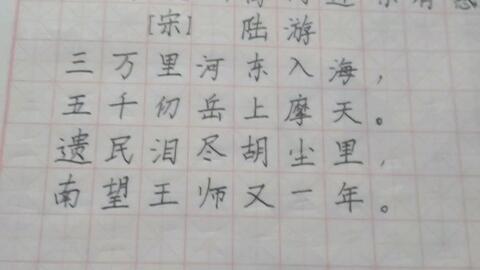 [宋] 陆游
三万里河东入海,
五千仞岳上摩天。
遗民泪尽胡尘里,
南望王师又一年。